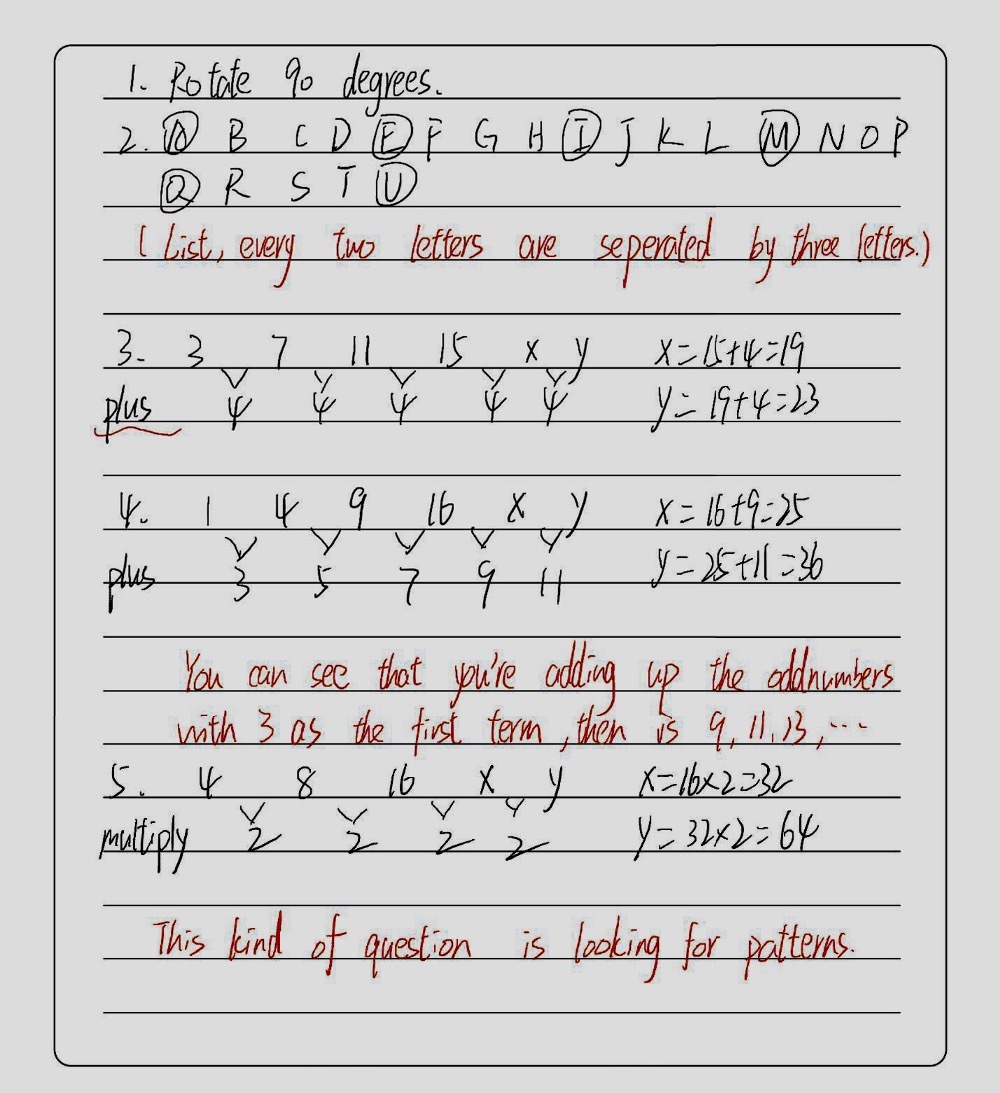 1. Rotate 90 degrees.
2. A B C D E F G H I J K L M N O P
Q R S T U
(List, every two letters are seperated by three letters.)
3. 3 7 11 15 x y x=15+4=19
plus 4 4 4 4 4 y=19+4=23
4. 1 4 9 16 x y x=16+9=25
plus 3 5 7 9 11 y=25+11=36
You can see that you're adding up the oddnumbers
with 3 as the first term, then is 9, 11, 13, ...
5. 4 8 16 x y x=16×2=32
multiply 2 2 2 2 y=32×2=64
This kind of question is looking for patterns.